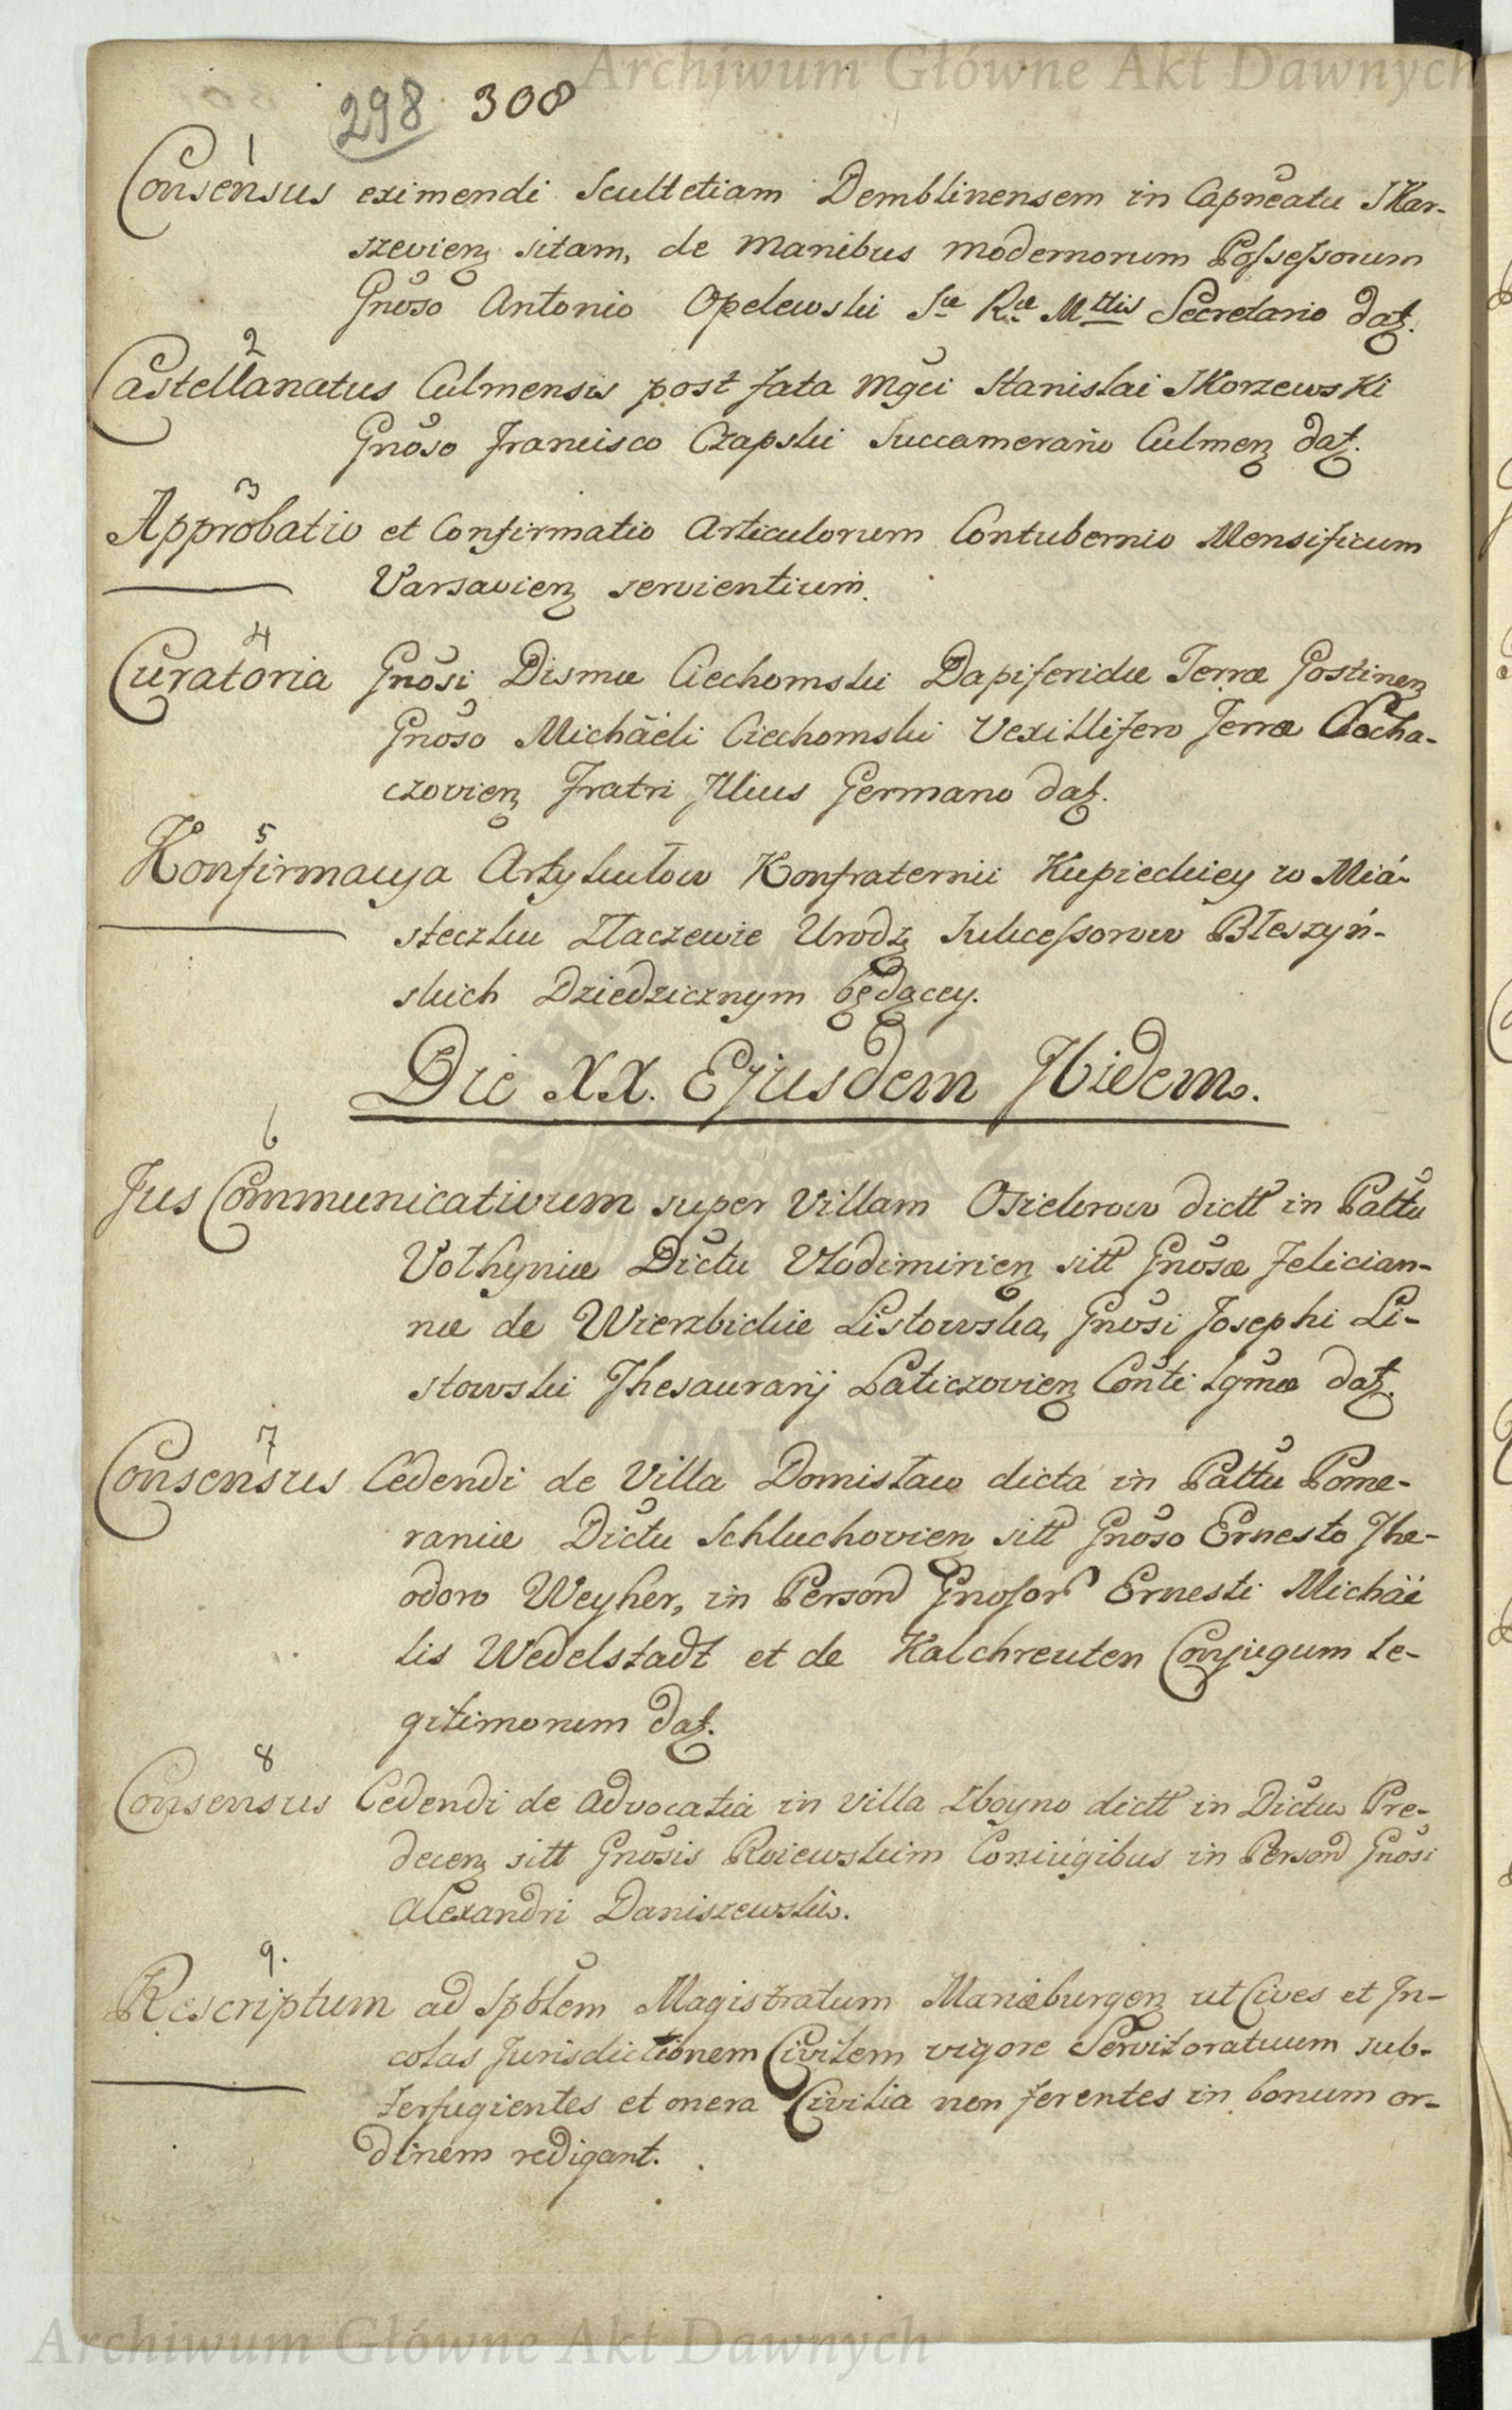 Archiwum Główne Akt Dawnych
298 308
1
Consensus eximendi Scultetiam Demblinensem in Capneatu Skar-
szevien sitam, de manibus modernorum Possessorum
Gnoso Antonio Opelewski Sæ Ræ Mttis Secretario dat.
2
Castellanatus Culmensis post fata Mgci Stanislai Skorzewski
Gnoso Francisco Czapski Succamerario Culmen dat.
3
Approbatio et Confirmatio Articulorum Contubernio Mensificum
Varsavien servientium.
4
Curatoria Gnosi Dismæ Ciechomski Dapiferidæ Terræ Gostinen
Gnoso Michaeli Ciechomski Vexillifero Terræ Socha-
czovien Fratri Illius Germano dat.
5
Konfirmacya Artykułow Konfraternii Kupieckiey w Miá-
steczku Złaczewie Urodz Sukcessorow Błeszyń-
skich Dziedzicznym będącey.
Die XX. Ejusdem Ibidem.
6
Jus Communicativum super Villam Osiekrow dictt in Pałtu
Volhyniæ Dictu Vlodimirien sitt Gnosæ Felician-
næ de Wierzbickie Listowska, Gnosi Josephi Li-
stowski Thesaurarij Laticzovien Conti Lgmæ dat.
7
Consensus Cedendi de Villa Domisław dicta in Pałtu Pome-
raniæ Dictu Schluchovien sitt Gnoso Ernesto The-
odoro Weyher, in Person Gnosor Ernesti Michäe
lis Wedelstadt et de Kalchreuten Conjugum le-
gitimorum dat.
8
Consensus Cedendi de Advocatia in Villa Zboyno dictt in Dictu Pre-
decen sitt Gnosis Roiewskim Coniugibus in Person Gnosi
Alexandri Daniszewski.
9.
Rescriptum ad Spblem Magistratum Mariæburgen ut Cives et In-
colas Jurisdictionem Civilem vigore Servitoratuum sub-
terfugientes et onera Civilia non ferentes in bonum or-
dinem redigant.
Archiwum Główne Akt Dawnych